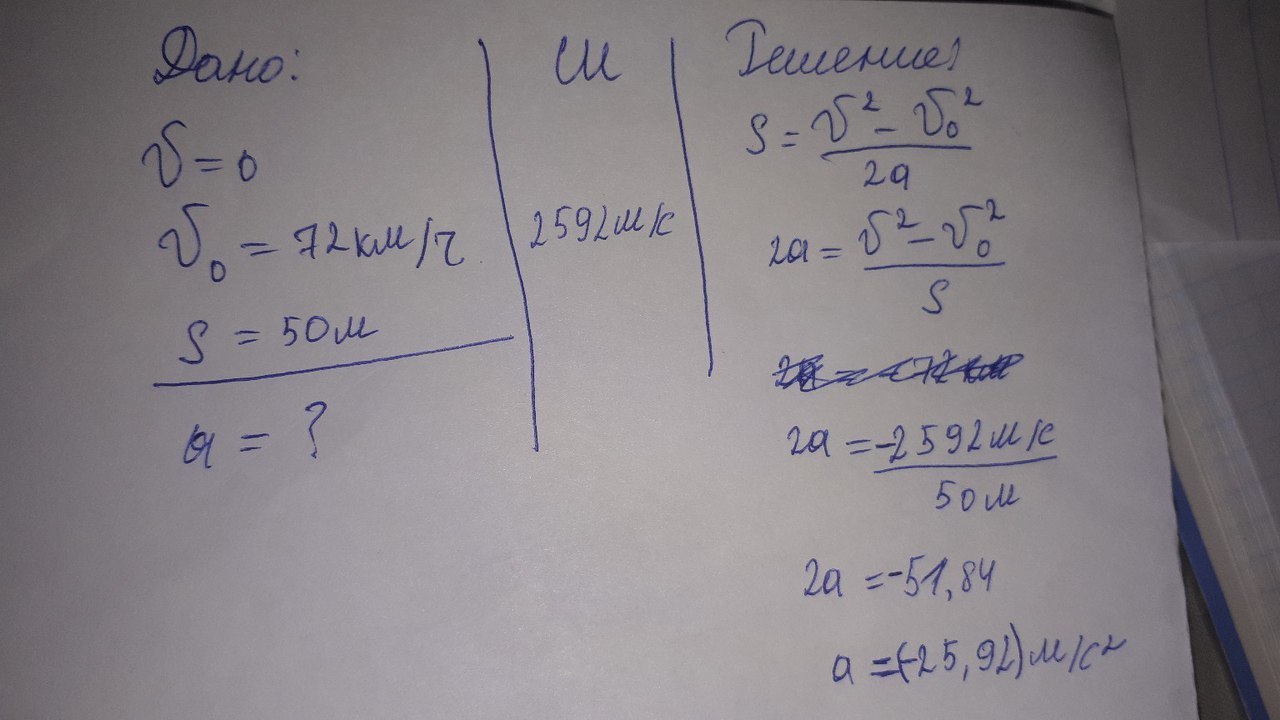 Дано:
v = 0
v₀ = 72 км/ч
S = 50 м
a = ?
СИ
2592 м/с
Решение:
S = (v² – v₀²) / 2a
2a = (v² – v₀²) / S
2a = –2592 м/с / 50 м
2a = –51,84
a = (–25,92) м/с²